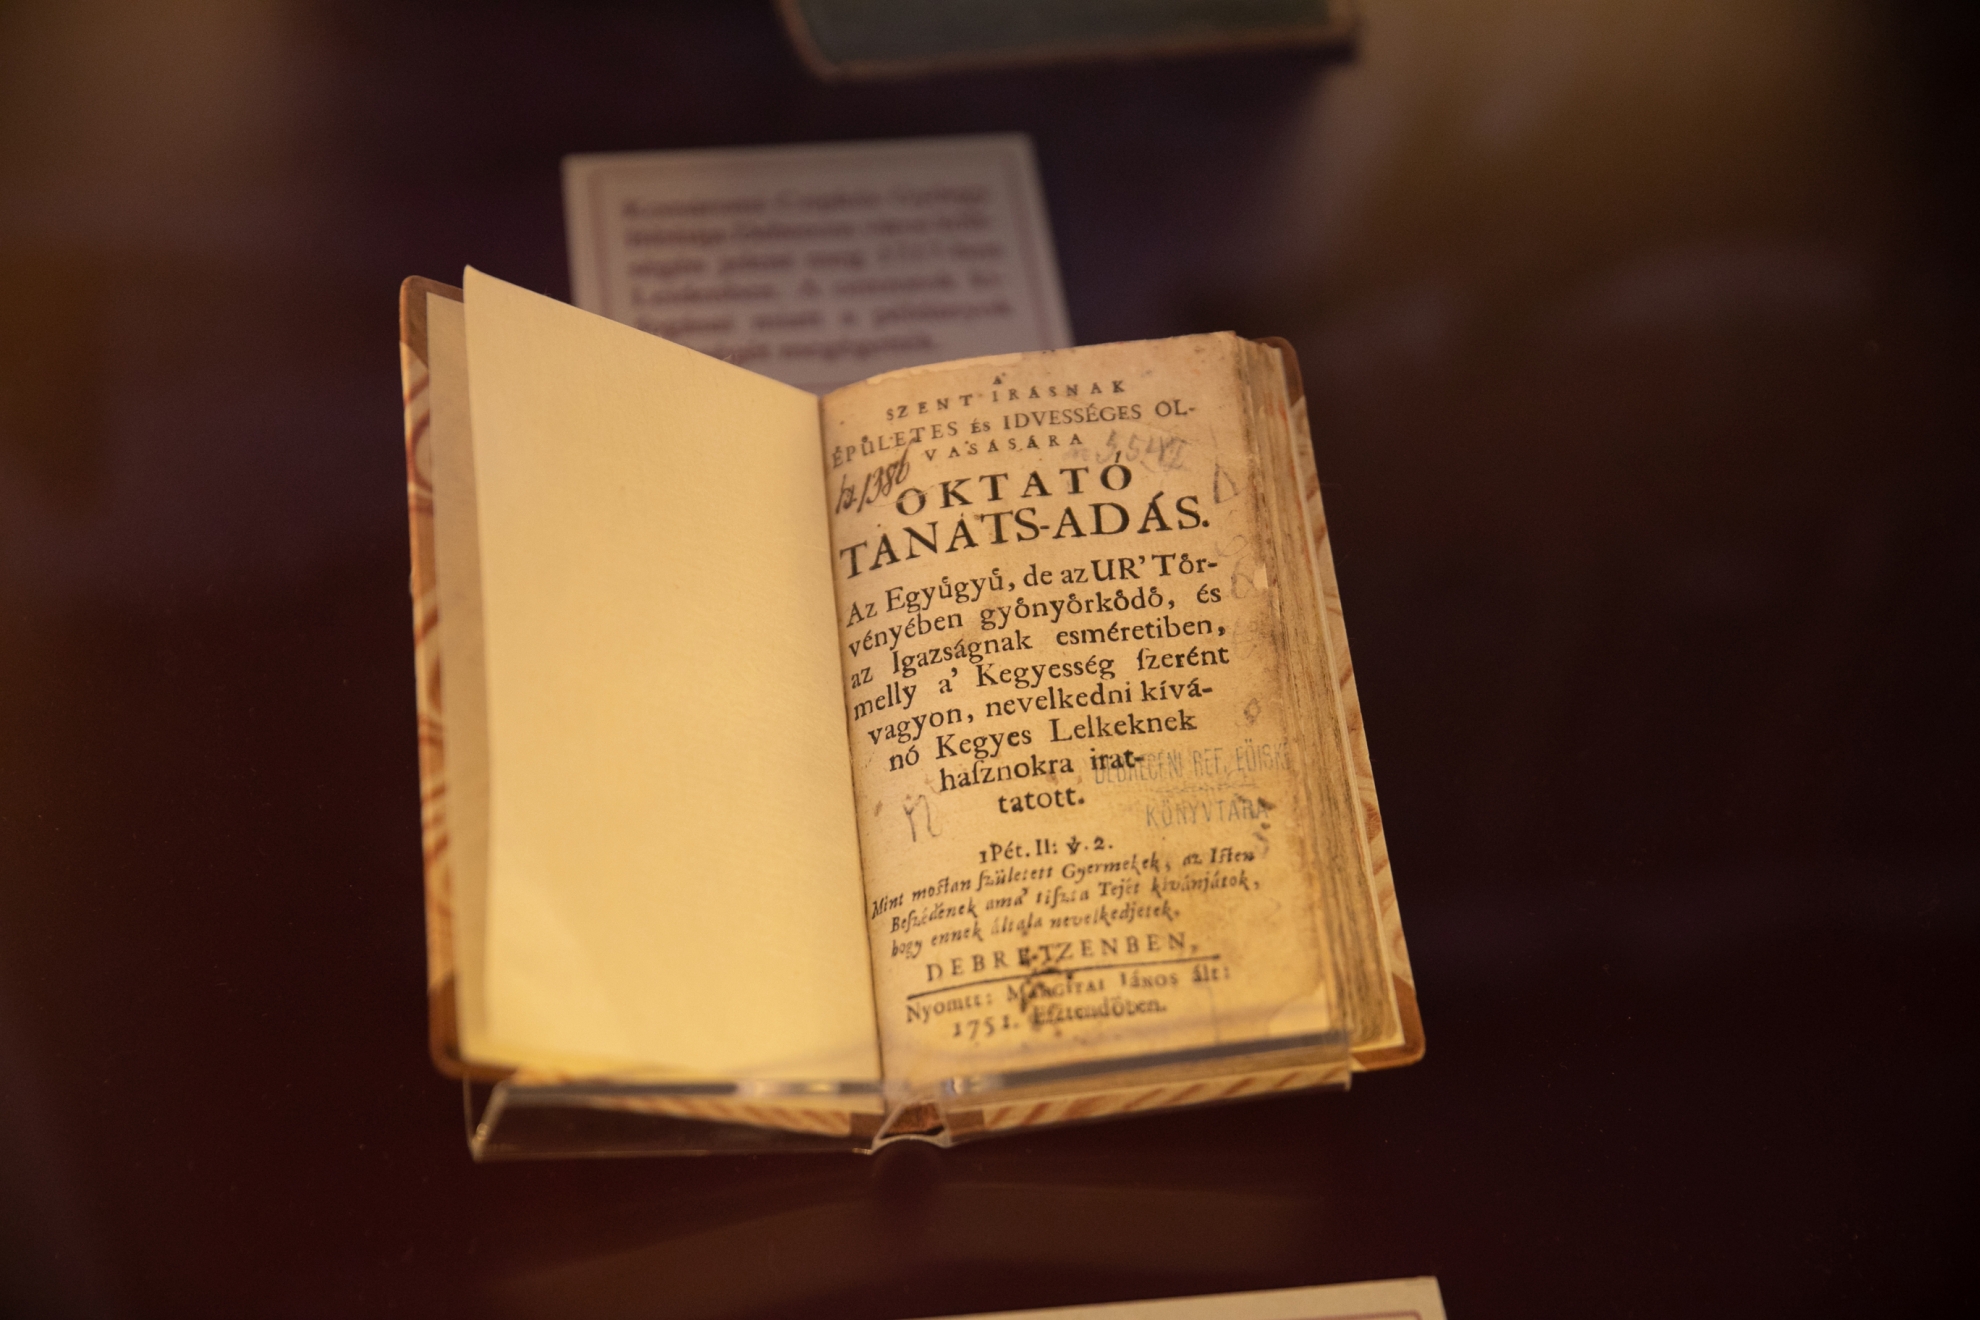 A'
SZENT IRÁSNAK
ÉPŮLETES és IDVESSÉGES OL-
VASÁSÁRA
OKTATÓ
TANÁTS-ADÁS.
Az Együgyű, de az UR' Tőr-
vényében győnyőrkődő, és
az Igazságnak esméretiben,
melly a' Kegyesség ſzerént
vagyon, nevelkedni kívá-
nó Kegyes Lelkeknek
haſznokra irat-
tatott.
DEBRECENI REF. FŐISK.
KÖNYVTÁRA
1Pét. II: ℣. 2.
Mint moſtan ſzületett Gyermekek, az Iſten
Beſzédének ama' tiſzta Tejét kívánjátok,
hogy ennek általa nevelkedjetek.
DEBRETZENBEN,
Nyomtt: MARGITAI János ált:
1751. Eſztendőben.